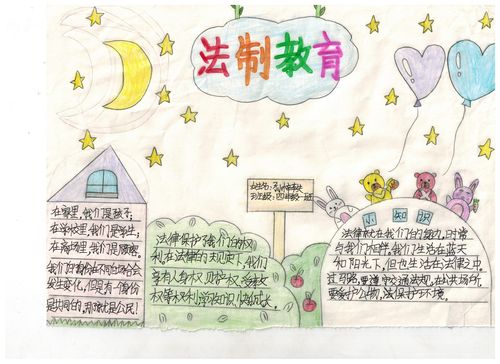 法制教育
姓名:
班级:四年级一班
小知识
在家里,我们是孩子;
在学校里,我们是学生;
在商场里,我们是顾客。
我们的身份在不同的场合会
发生变化,但是有一个身份
是共同的,那就是公民!
法律保护了我们的权
利在法律的规定下,我们
享有人身权、财产权、受教
权等权利学习知识、快乐成长。
法律就在我们的身边,时常
与我们相伴。我们生活在蓝天
和阳光下,但也生活在法律之中。
过马路,要遵守交通法规,在公共场所,
要爱护公物,法保护环境。